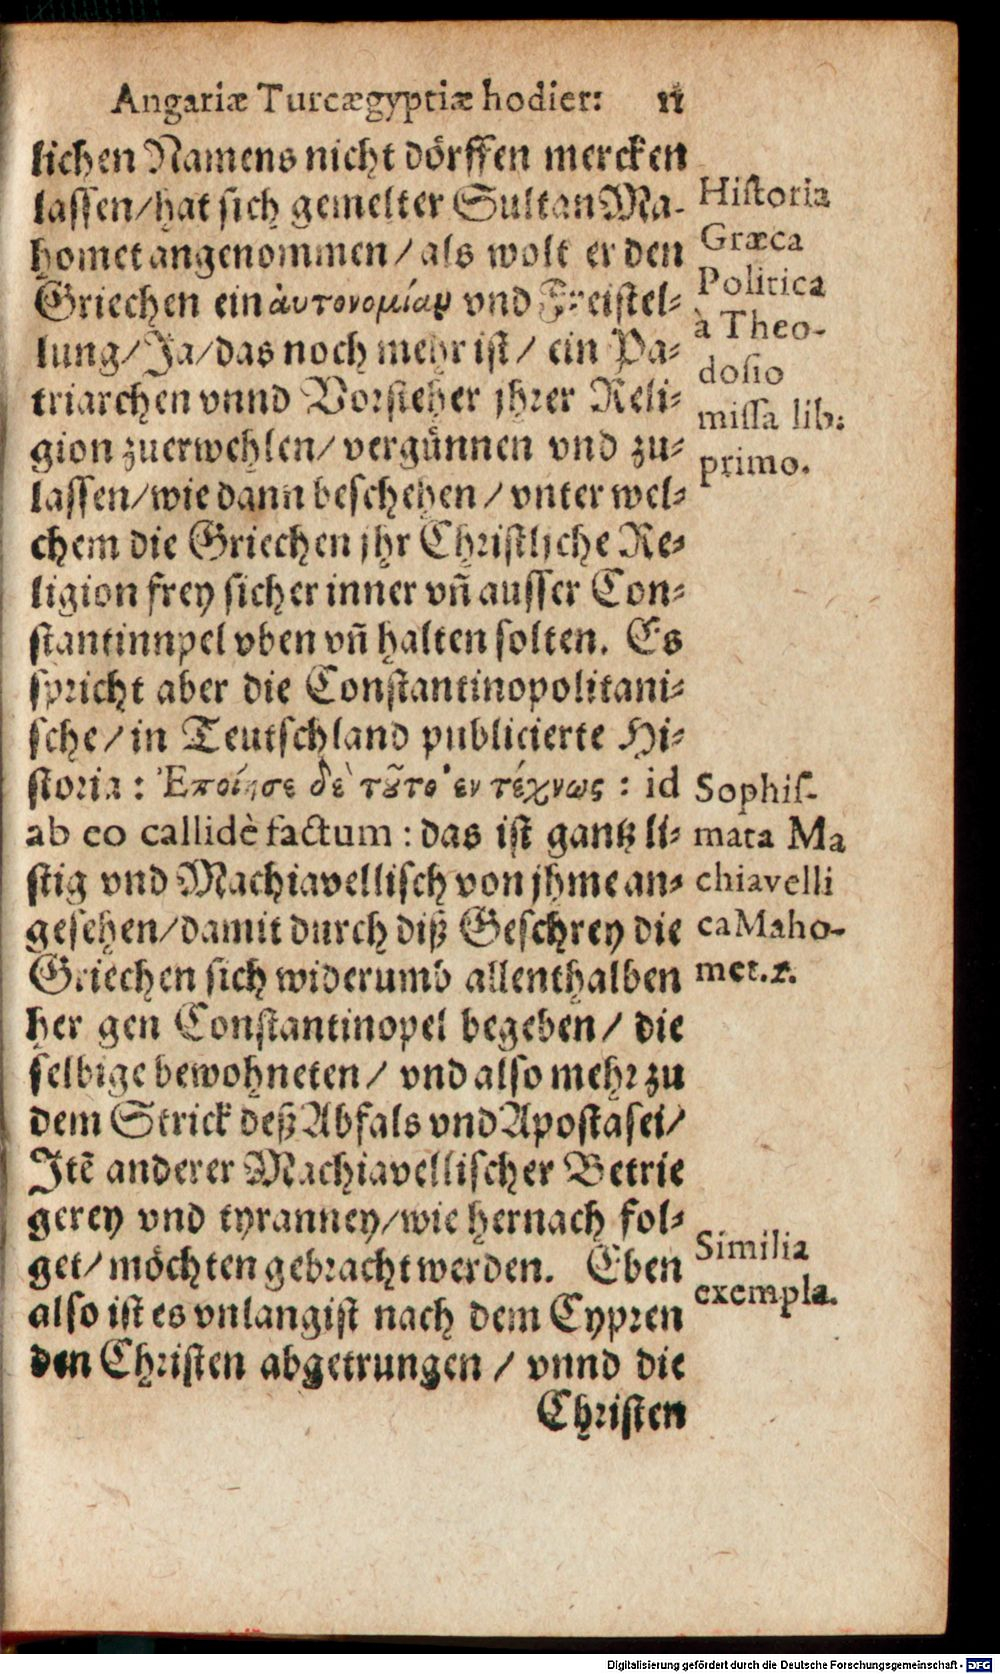 Angariæ Turcægyptiæ hodier: 11
lichen Namens nicht dörffen mercken
lassen/hat sich gemelter Sultan Ma-
homet angenommen/als wolt er den
Griechen ein ἀυτονομίαν vnd Freistel-
lung/Ja/das noch mehr ist/ein Pa-
triarchen vnnd Vorsteher jhrer Reli-
gion zuerwehlen/vergünnen vnd zu-
lassen/wie dann beschehen/vnter wel-
chem die Griechen jhr Christljche Re-
ligion frey sicher inner vñ ausser Con-
stantinnpel vben vñ halten solten. Es
spricht aber die Constantinopolitani-
sche/in Teutschland publicierte Hi-
storia: Ἐποίησε δὲ τȣ͂το ἐν τέχνως: id
ab eo callidè factum: das ist gantz li-
stig vnd Machiavellisch von jhme an-
gesehen/damit durch diß Geschrey die
Griechen sich widerumb allenthalben
her gen Constantinopel begeben/die
selbige bewohneten/vnd also mehr zu
dem Strick deß Abfals vnd Apostasei/
Itẽ anderer Machiavellischer Betrie
gerey vnd tyranney/wie hernach fol-
get/möchten gebracht werden. Eben
also ist es vnlangist nach dem Cypren
den Christen abgetrungen/vnnd die
Christen
Historia
Græca
Politica
à Theo-
dosio
missa lib:
primo.
Sophis-
mata Ma
chiavelli
ca Maho-
met.2.
Similia
exempla.
Digitalisierung gefördert durch die Deutsche Forschungsgemeinschaft - DFG